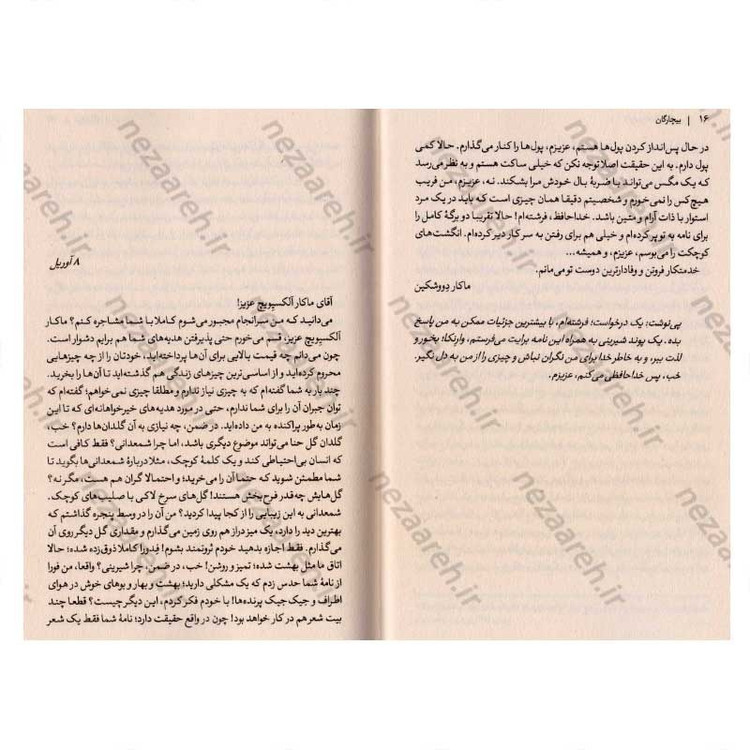 ۱۶ | بیچارگان
در حال پس‌انداز کردن پول‌ها هستم، عزیزم، پول‌ها را کنار می‌گذارم. حالا کمی
پول دارم. به این حقیقت اصلا توجه نکن که خیلی ساکت هستم و به نظر می‌رسد
که یک مگس می‌تواند با ضربهٔ بال خودش مرا بشکند. نه، عزیزم، من فریب
هیچ‌کس را نمی‌خورم و شخصیتم دقیقا همان چیزی است که باید در یک مرد
استوار با ذات آرام و متین باشد. خداحافظ، فرشته‌ام! حالا تقریبا دو برگهٔ کامل را
برای نامه به تو پر کرده‌ام و خیلی هم برای رفتن به سر کار دیر کرده‌ام. انگشت‌های
کوچکت را می‌بوسم، عزیزم، و همیشه...
خدمتکار فروتن و وفادارترین دوست تو می‌مانم.
ماکار دِووشکین
پی‌نوشت: یک درخواست؛ فرشته‌ام، با بیشترین جزئیات ممکن به من پاسخ
بده. یک پوند شیرینی به همراه این نامه برایت می‌فرستم، وارنکا؛ بخور و
لذت ببر، و به خاطر خدا برای من نگران نباش و چیزی را از من به دل نگیر.
خب، پس خداحافظی می‌کنم، عزیزم.
۸ آوریل
آقای ماکار آلکسیویچ عزیز!
می‌دانید که من سرانجام مجبور می‌شوم کاملا با شما مشاجره کنم؟ ماکار
آلکسیویچ عزیز، قسم می‌خورم حتی پذیرفتن هدیه‌های شما هم برایم دشوار است.
چون می‌دانم چه قیمت بالایی برای آن‌ها پرداخته‌اید، خودتان را از چه چیزهایی
محروم کرده‌اید و از اساسی‌ترین چیزهای زندگی هم گذشته‌اید تا آن‌ها را بخرید.
چند بار به شما گفته‌ام که به چیزی نیاز ندارم و مطلقا چیزی نمی‌خواهم؛ گفته‌ام که
توان جبران آن را برای شما ندارم، حتی در مورد هدیه‌های خیرخواهانه‌ای که تا این
زمان به‌طور پراکنده به من داده‌اید. در ضمن، چه نیازی به آن گلدان‌ها دارم؟ خب،
گلدان گل حنا می‌تواند موضوع دیگری باشد، اما چرا شمعدانی؟ فقط کافی است
که انسان بی‌احتیاطی کند و یک کلمهٔ کوچک، مثلا دربارهٔ شمعدانی‌ها بگوید تا
شما مطمئن شوید که حتما آن را می‌خرید؛ و احتمالا گران هم هست، مگر نه؟
گل‌هایش چه‌قدر فرح‌بخش هستند! گل‌های سرخ لاکی با صلیب‌های کوچک.
شمعدانی به این زیبایی را از کجا پیدا کردید؟ من آن را در وسط پنجره گذاشتم که
بهترین دید را دارد، یک میز دراز هم روی زمین می‌گذارم و مقداری گل دیگر آن
می‌گذارم. فقط اجازه بدهید خودم ثروتمند بشوم! فِدورا کاملا ذوق‌زده شده؛ حالا
اتاق ما مثل بهشت شده؛ تمیز و روشن! خب، در ضمن، چرا شیرینی؟ واقعا، من فورا
از نامهٔ شما حدس زدم که یک مشکلی دارید؛ بهشت و بهار و بوهای خوش در هوای
اطراف و جیک جیک پرنده‌ها! با خودم فکر کردم، این دیگر چیست؟ قطعا چند
بیت شعر هم در کار خواهد بود! چون در واقع حقیقت دارد؛ نامهٔ شما فقط یک شعر
nezaareh.ir